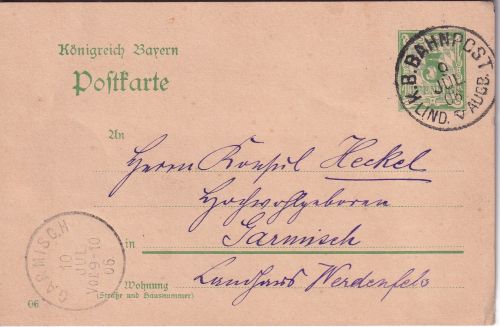 Königreich Bayern
Postkarte
K.B. BAHNPOST
9
JUL
06
LIND. AUGB.
An
Herrn Konsul Heckel
Hochwohlgeboren
in Garmisch
GARMISCH
10
JUL
Vor.9-10
06.
Wohnung Landhaus Werdenfels
(Straße und Hausnummer)
06